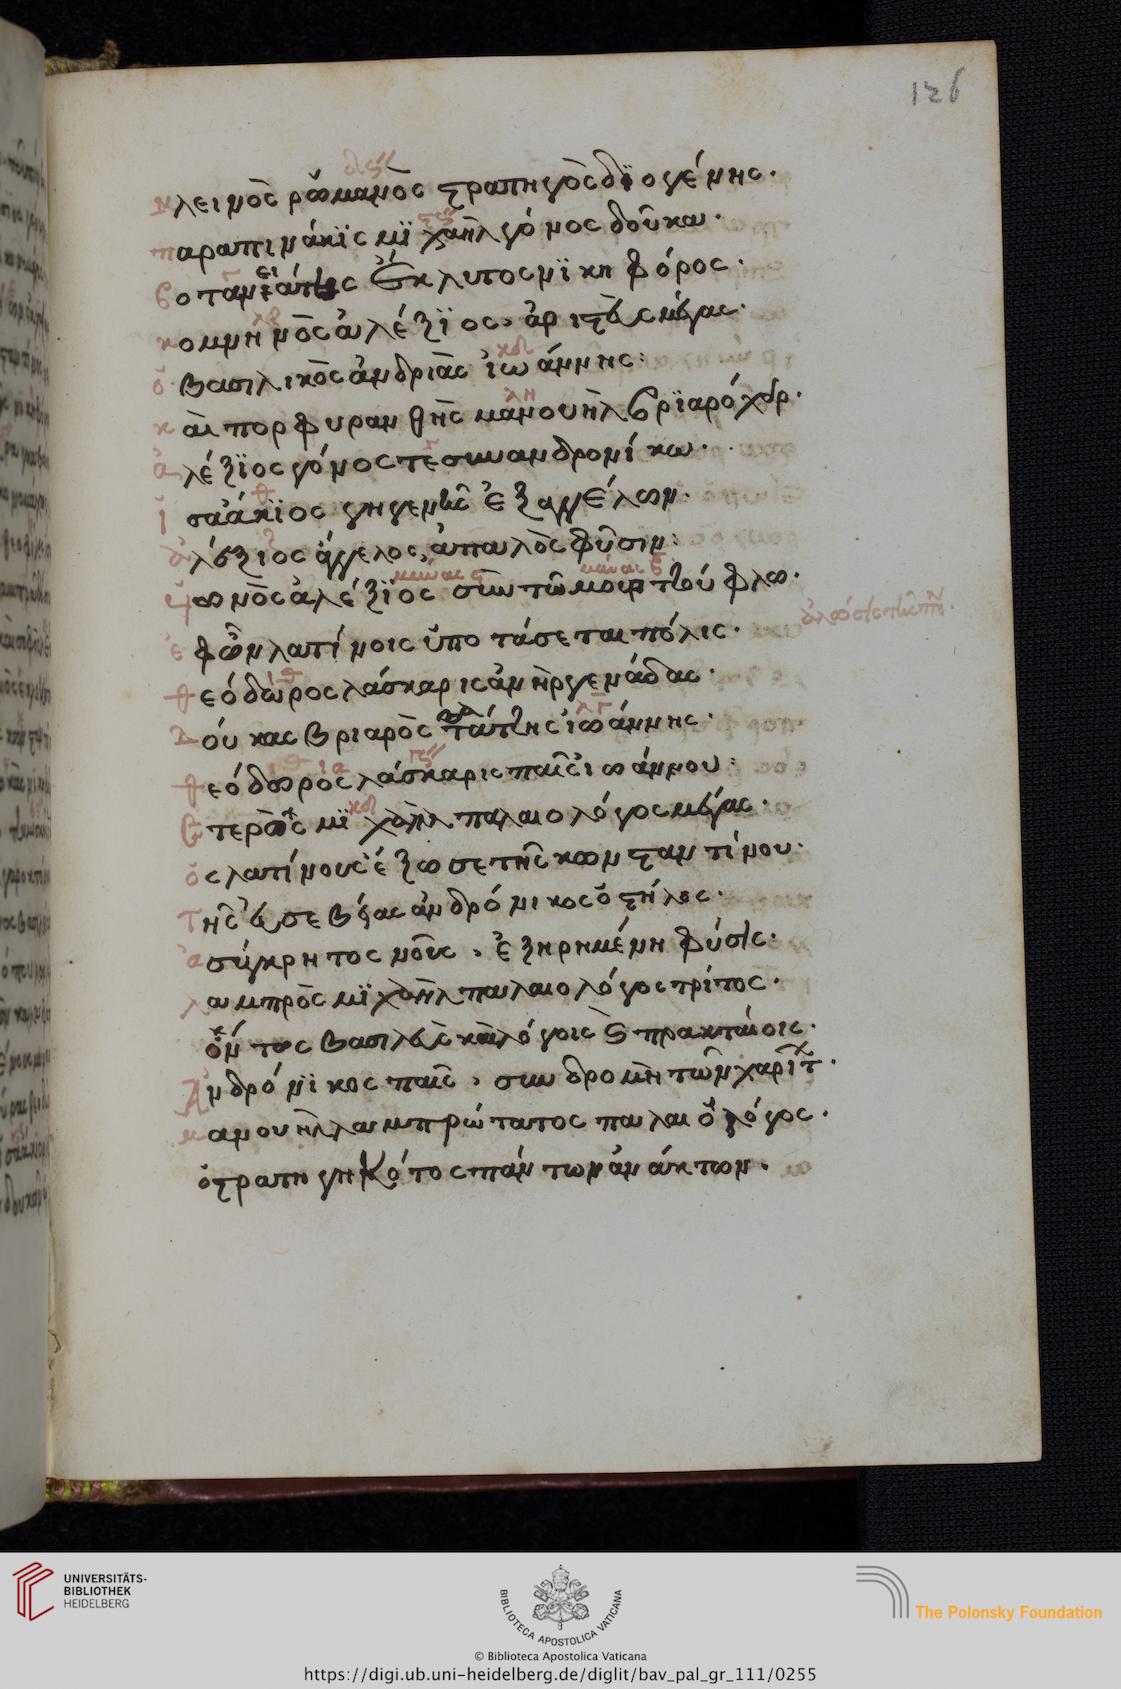 126
κλεινὸς ῥωμανὸς στρατηγὸς διογένης·
παραπινάκϊς μϊχαὴλ γόνος δοῦκα·
βοτανειάτης ἔκλυτος νϊκηφόρος·
κομνηνὸς ἀλέξϊος, ἀριστεὺς μέγας·
ὁ βασιλικὸς ἀνδριὰς ἰωάννης:
καὶ πορφυρανθὴς μανουὴλ βρϊαρόχειρ·
ἀλέξϊος γόνος τε σὺν ἀνδρονίκω·
ἰσαάκϊος γηγενὴς ἐξ ἀγγέλων·
ἀλέξιος ἄγγελος, ἁπαλὸς φύσιν:
ἐφ ὧν λατίνοις ὑποτάσεται πόλις·
θεόδωρος λάσκαρις ἀνὴρ γεννάδας·
δούκας βριαρὸς βατάτζης ἰωάννης·
θεόδωρος λάσκαρις παῖς ἰωάννου:
μϊχαὴλ παλαιολόγος μέγας·
ὃς λατίνους ἔξωσε τῆς κωνσταντίνου·
τῆς εὐσεβείας ἀνδρόνικος ὁ στήλος·
ἀσύγκρητος νοῦς, ἐξηρημένη φύσις·
λαμπρὸς μϊχαὴλ παλαιολόγος τρίτος·
ὄντως βασιλεὺς καὶ λόγοις καὶ πρακταίοις·
Ἀνδρόνϊκος παῖς, συνδρομὴ τῶν χαρίτ·
μανουὴλ λαμπρώτατος παλαιολόγος·
ὁ στρατηγηκότος πάντων ἀνάκτων·
UNIVERSITÄTS-
BIBLIOTHEK
HEIDELBERG
BIBLIOTECA APOSTOLICA VATICANA
The Polonsky Foundation
© Biblioteca Apostolica Vaticana
https://digi.ub.uni-heidelberg.de/diglit/bav_pal_gr_111/0255